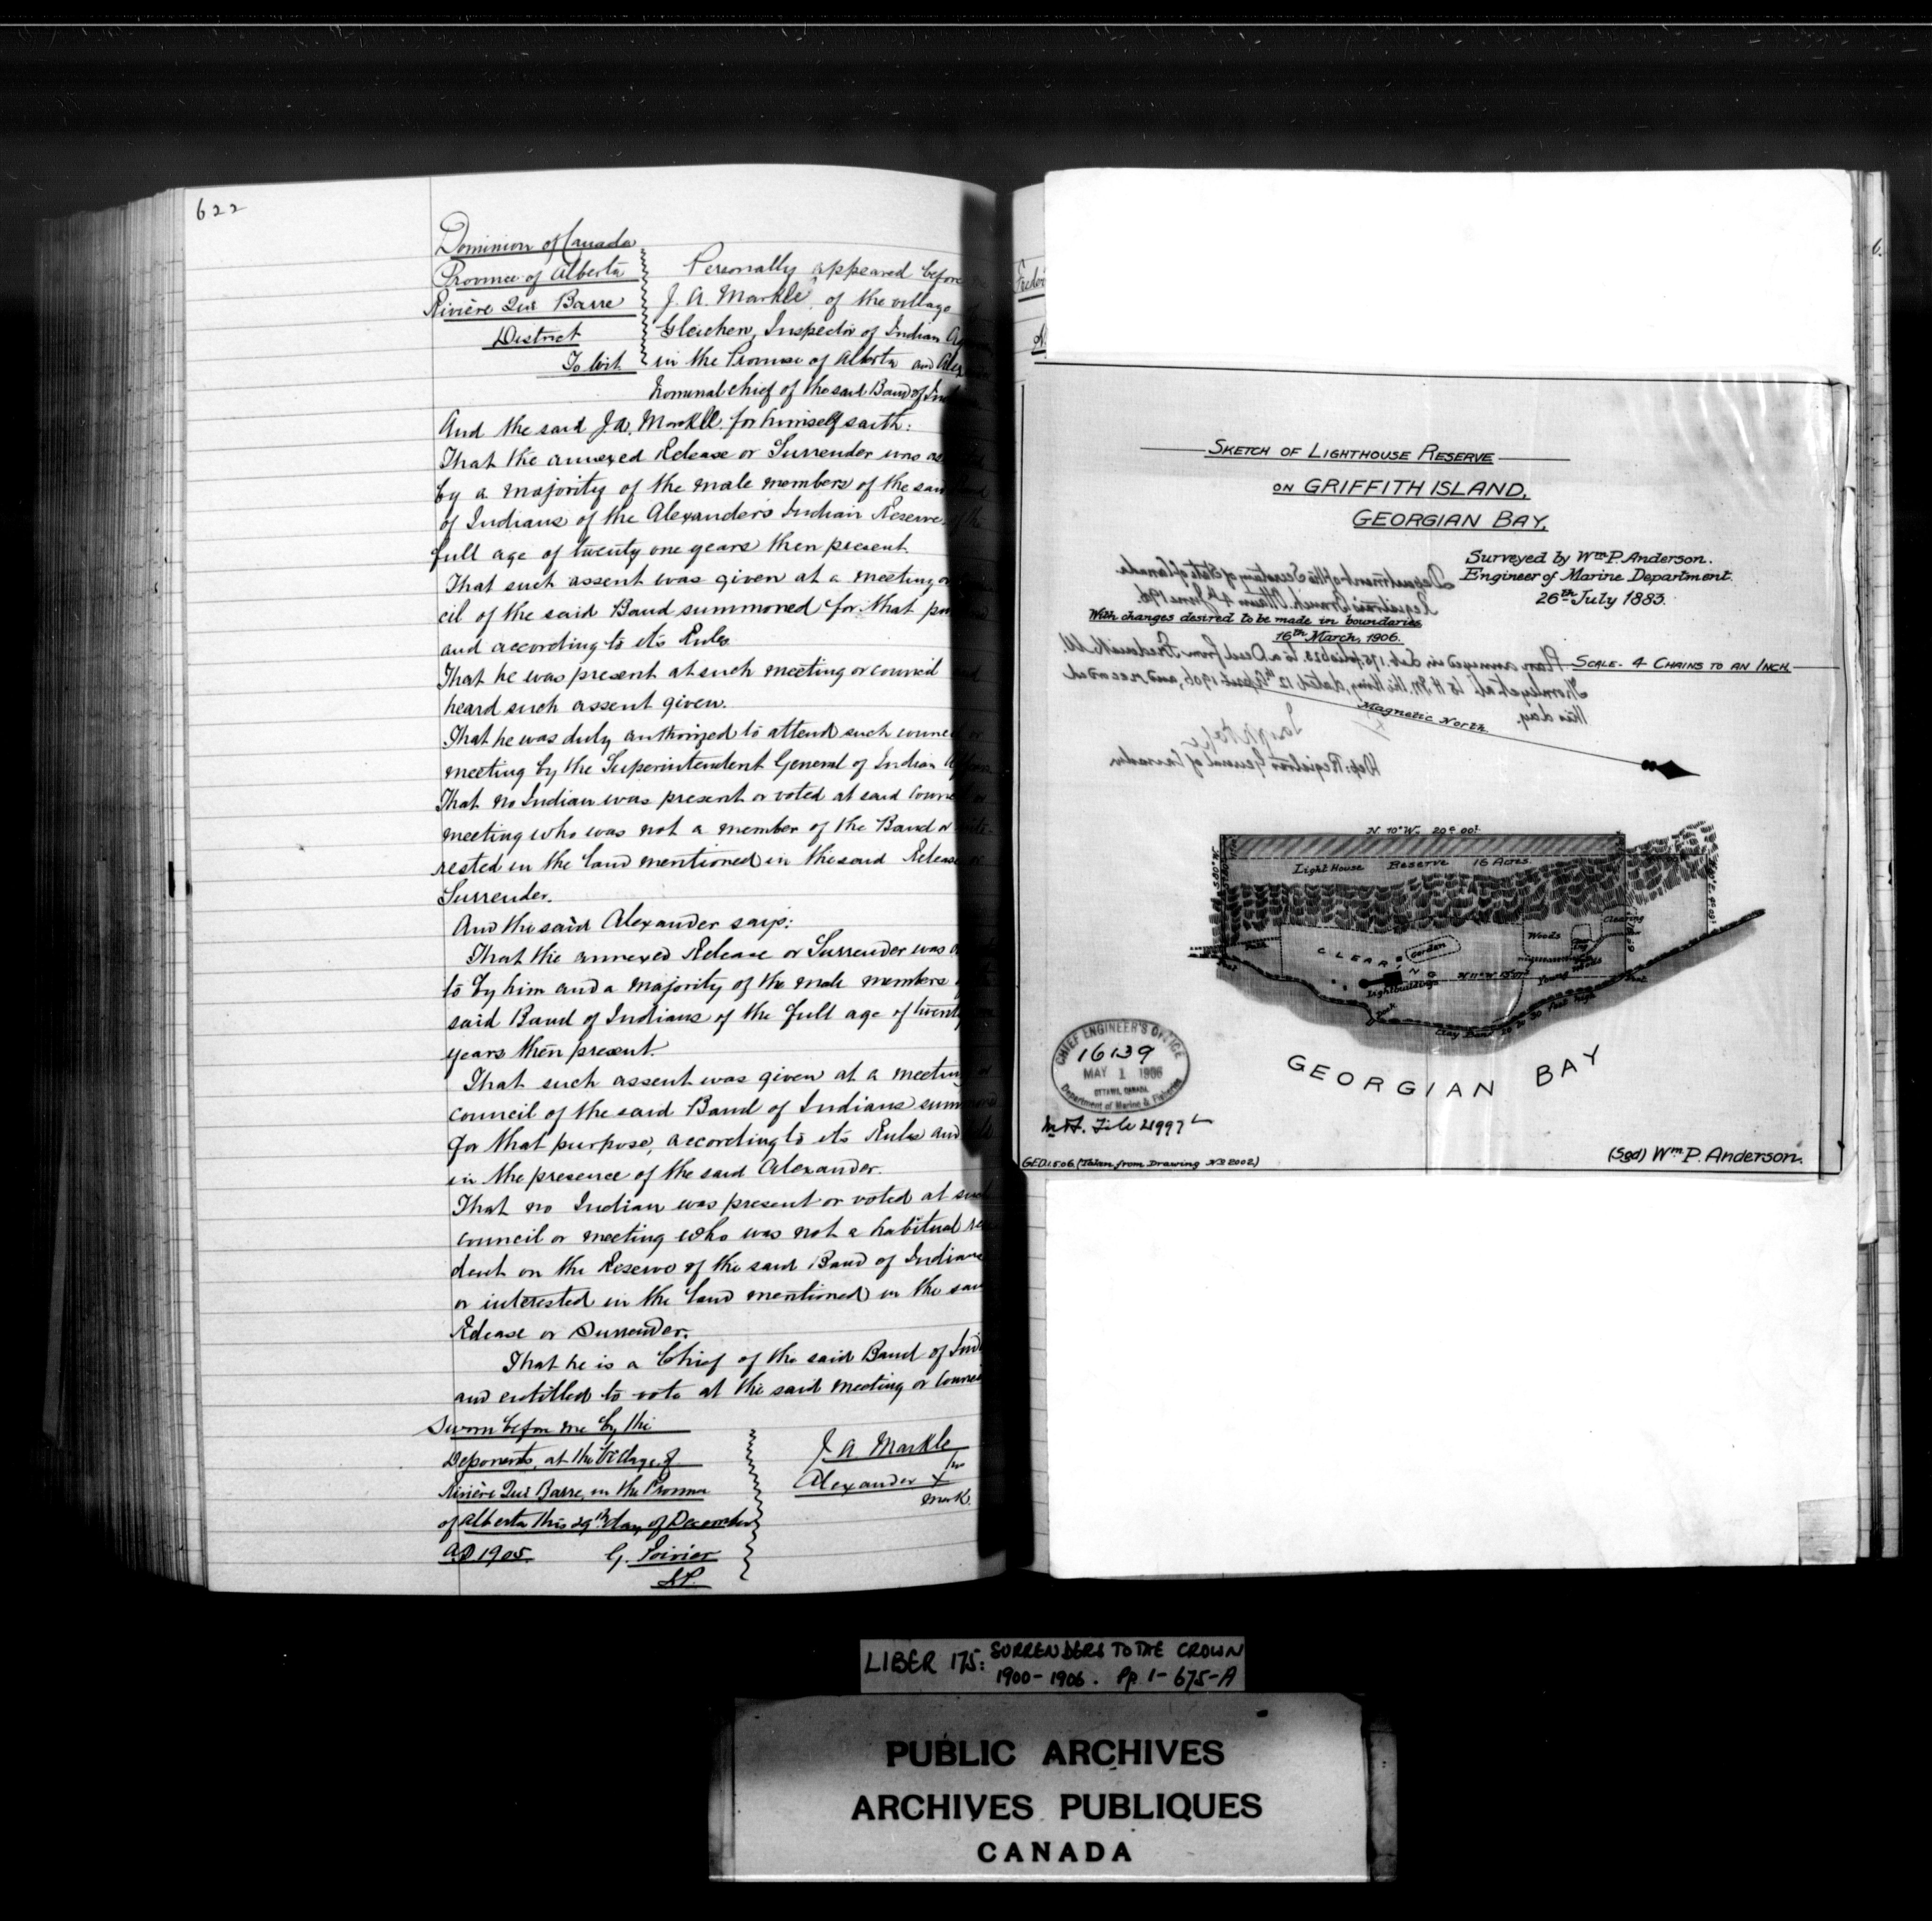 622
Dominion of Canada
Province of Alberta
Rivière Qui Barre
District
To Wit
Personally appeared before
J. A. Markle, of the village
Gleichen, Inspector of Indian
in the Province of Alberta and
Nominal chief of the said Band of
And the said J. A. Markle for himself saith:
That the annexed Release or Surrender was
by a majority of the male members of the
of Indians of the Alexander's Indian Reserve of the
full age of twenty one years then present
That such assent was given at a meeting or
cil of the said Band summoned for that
and according to its Rules
That he was present at such meeting or council and
heard such assent given.
That he was duly authorized to attend such council or
meeting by the Superintendent General of Indian
That no Indian was present or voted at said council or
meeting who was not a member of the Band or inte-
rested in the land mentioned in the said Release or
Surrender.
And the said Alexander says:
That the annexed Release or Surrender was
to by him and a majority of the male members
said Band of Indians of the full age of twenty
years then present.
That such assent was given at a meeting or
council of the said Band of Indians
for that purpose, according to its Rules and
in the presence of the said Alexander.
That no Indian was present or voted at such
council or meeting who was not a habitual
dent on the Reserve of the said Band of Indians
or interested in the land mentioned in the
Release or Surrender.
That he is a Chief of the said Band of
and entitled to vote at the said meeting or
Sworn before me by the
Deponents, at the Village of
Rivière Qui Barre, in the Province
of Alberta this 29th day of December
A.D 1905.
G. Poirier
J.P.
J A. Markle
Alexander X his
mark
SKETCH OF LIGHTHOUSE RESERVE
ON GRIFFITH ISLAND,
GEORGIAN BAY,
Surveyed by Wm P. Anderson.
Engineer of Marine Department.
26th July 1883.
Department of the Secretary of State of Canada
Registrar's Branch. Ottawa 4th June 1906
With changes desired to be made in boundaries
16th March, 1906.
SCALE - 4 CHAINS TO AN INCH
Plan annexed in Lib. 175 folio 623 to a Deed from Frederick W.
Thornley et al. to H.M. the King, dated 12th April 1906, and recorded
this day.
Magnetic North.
Dep: Registrar General of Canada
N. 10° W. 20c 00l
Light House Reserve 16 Acres.
Clearing
Woods
CLEARING
Garden
Lightbuildings
Young Woods
Clay Bank 20 to 30 feet high
GEORGIAN BAY
CHIEF ENGINEER'S OFFICE
16139
MAY 1 1906
OTTAWA, CANADA.
Department of Marine & Fisheries
File 21997
(Taken from Drawing No 2002)
(Sgd) Wm P. Anderson.
LIBER 175: SURRENDERS TO THE CROWN
1900-1906. Pp 1-675-A
PUBLIC ARCHIVES
ARCHIVES PUBLIQUES
CANADA